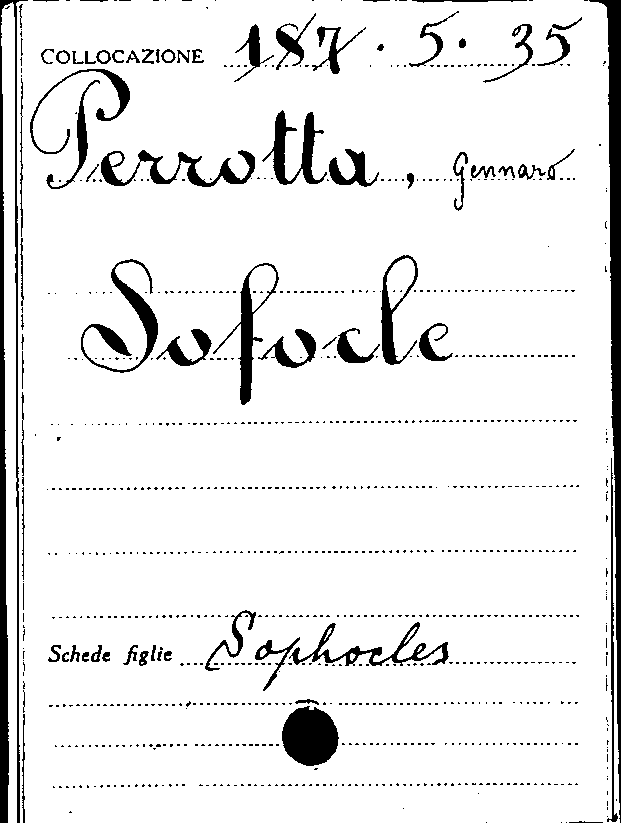 COLLOCAZIONE 187 . 5 . 35
Perrotta, Gennaro
Sofocle
Schede figlie Sophocles